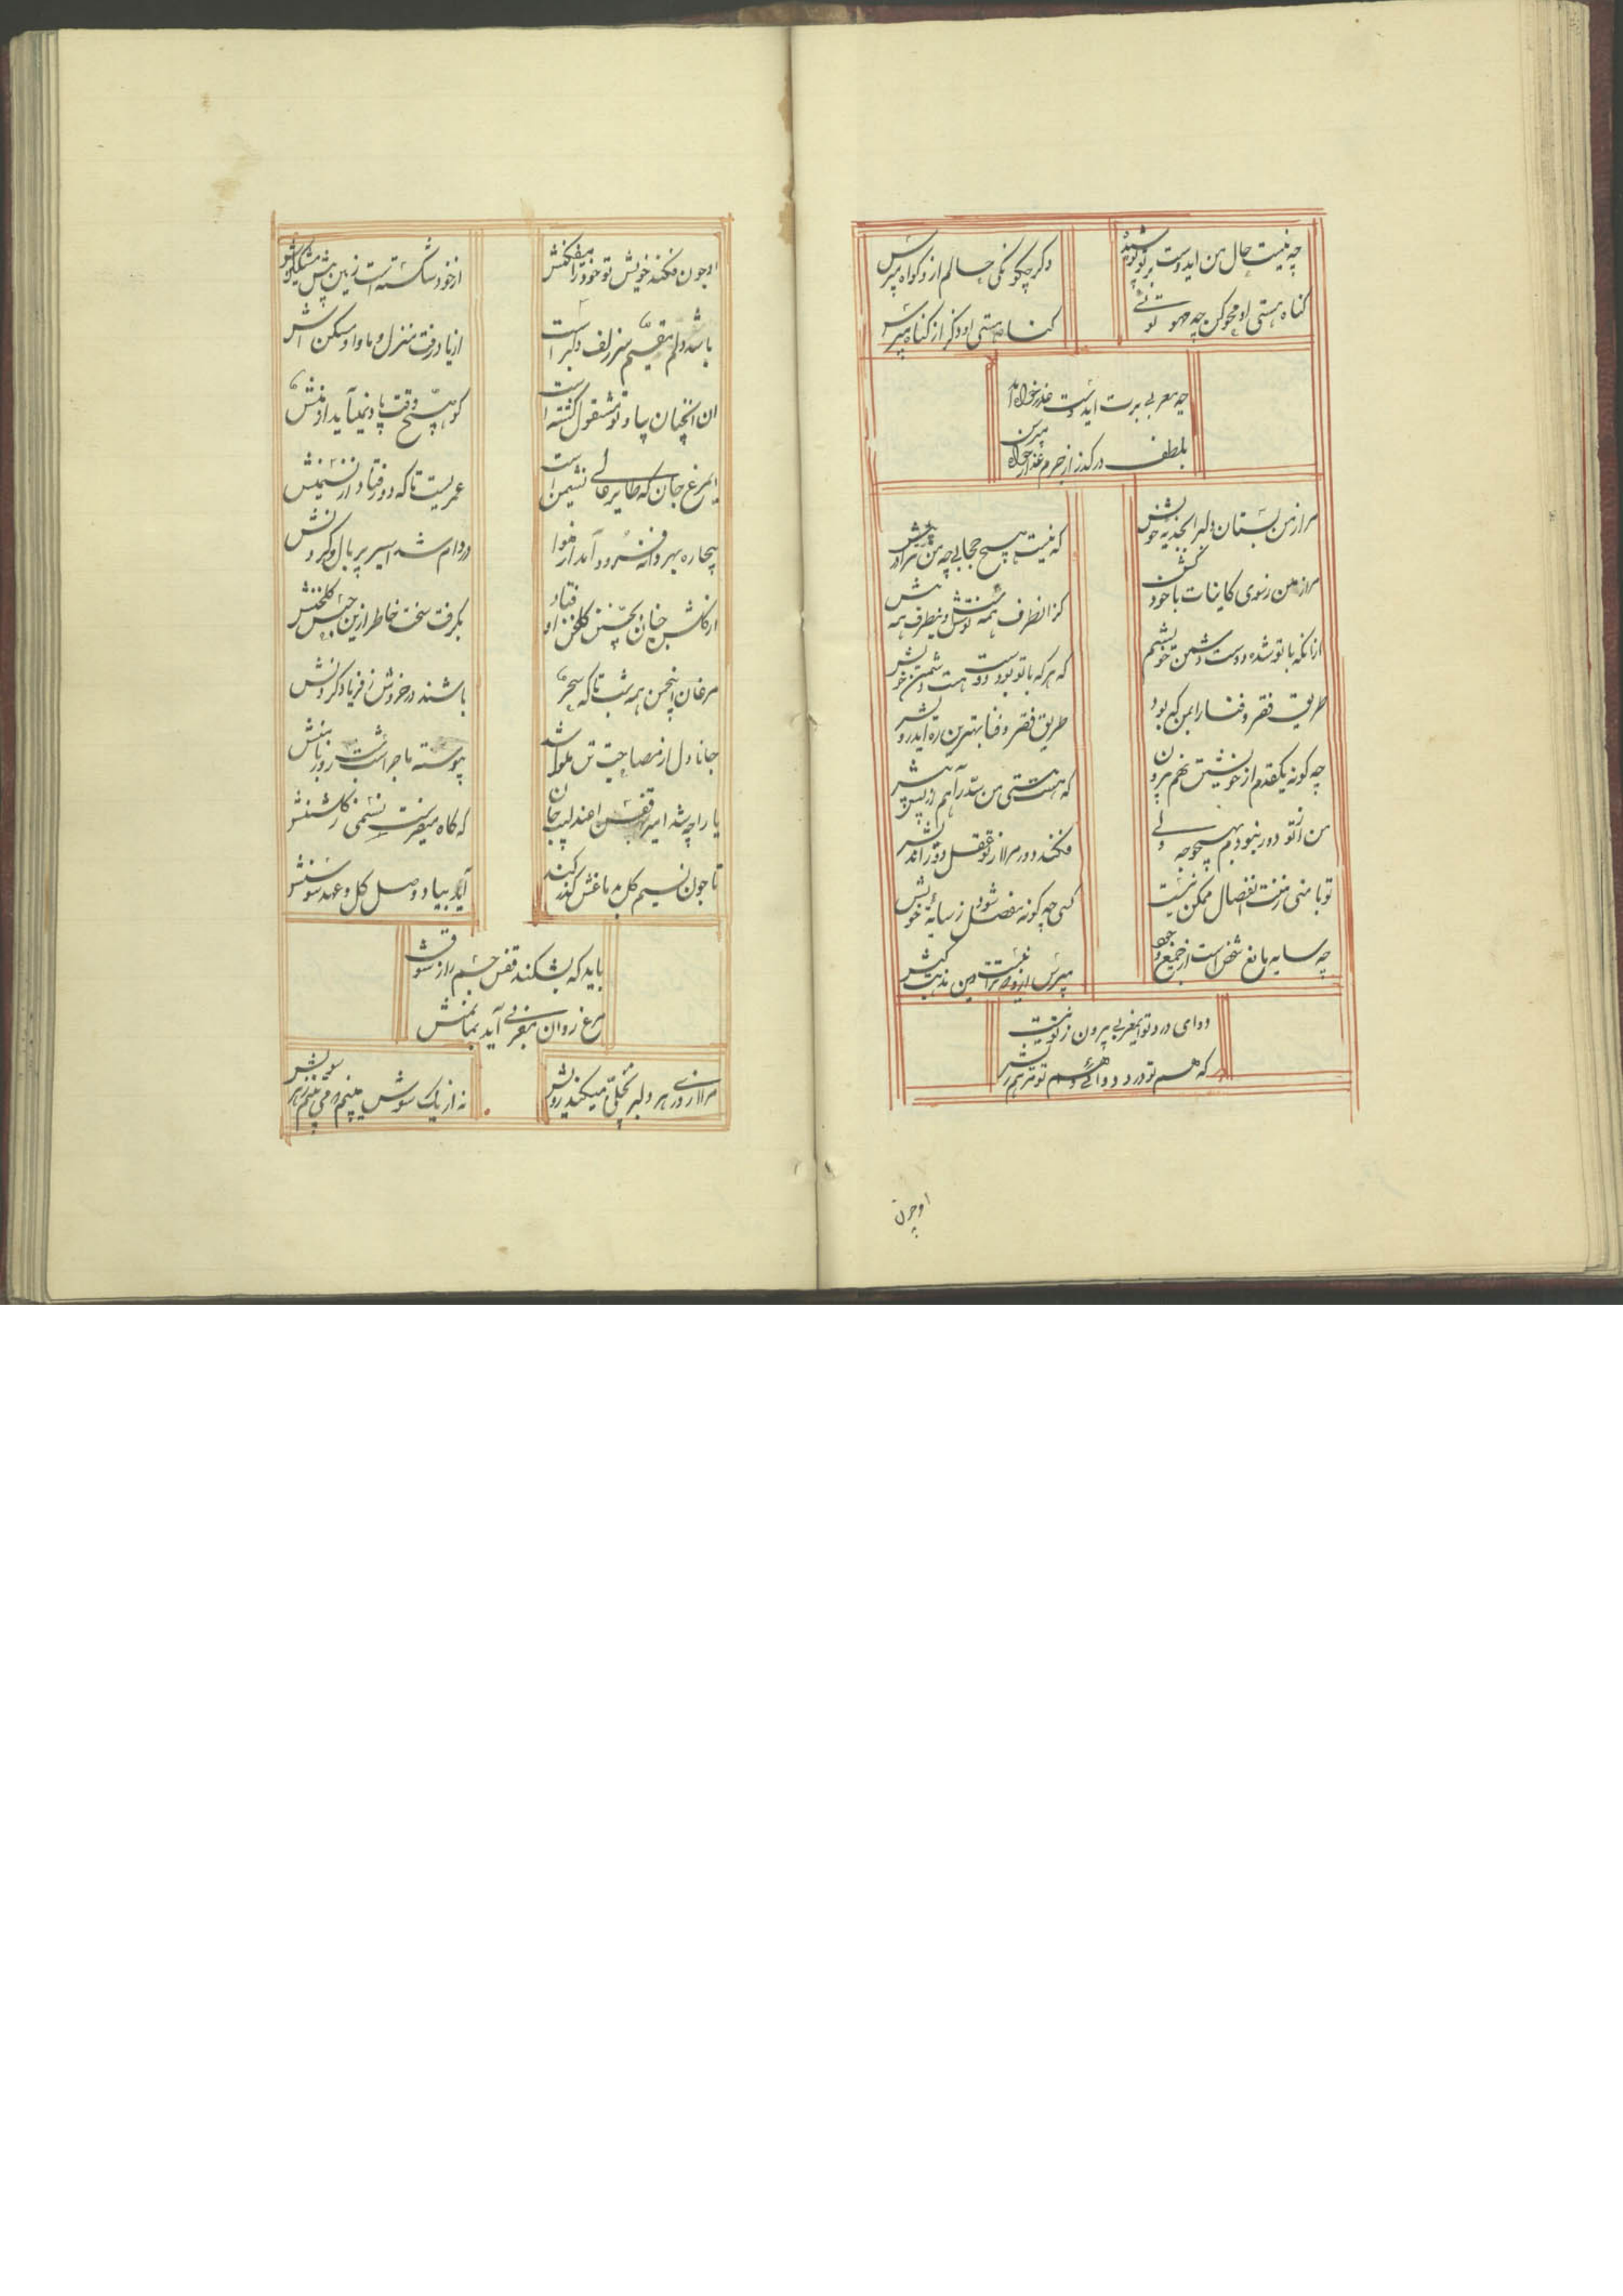 چه نیست حال من ایدوست بر تو پوشیده
دگر چگونگی حالم از گواه مپرس
گناه هستی او محو کن چه محو توئی
گناه هستی او دگر از گناه مپرس
چه مغربی برت ایدوست عذرخواه آمد
بلطف درگذر از جرم عذرخواه مپرس
مرا ز من بستان دلبرا بجذبه خویش
که نیست هیچ حجابی چه من مرا در پیش
مرا ز من سوی کاینات با خود کش
کز انطرف همه نوشش و ینطرف همه نیش
ازانکه با تو شده دوست دشمن خویشم
که هر که با تو بود دوست هست دشمن خویش
طریق فقر و فنا را بمن که بود
طریق فقر و فنا بهترین ره ایدرویش
چه گونه یکقدم از خویشتن نهم بیرون
که هست هستی من سد راهم از پس و پیش
من از تو دور نبودم بهیچ وجه ولی
فکند دور مرا از تو عقل دوراندیش
تو با منی ز منت انفصال ممکن نیست
کسی چه گونه منفصل شود ز سایه خویش
چه سایه مانع شخص است از جمیع وجوه
مپرس ازو که نیست این مذهب کیش
دوای درد تو ایمغربی بیرون ز تو نیست
که هم تو درد و دوائی و هم تو مرهم ریش
او چون
او چون فکند خویش تو خود را میفکنش
از خود شکسته است زین بیش مشکنش
باشد دلم مقیم سر زلف دلبر است
از یاد رفت منزل و ماوا و مسکنش
ان انچنان بیاد تو مشغول گشته است
کو هیچ وقت یاد نمیآید از منش
ایمرغ جان که طایر عالی نشیمن است
عمریست تا که دور فتاد از نشیمنش
بیچاره بهر دانه فرود آمد از هوا
در دام شد اسیر پر بال و گردنش
از گلشن جنان بچنین گلخن او فتاد
بگرفت سخت خاطر ازین حبس گلخنش
مرغان انجمن همه شب تا گه سحر
باشند در خروش ز فریاد کردنش
جانا دل از مصاحبت تن ملول شد
پیوسته ماجراست شب روز با تنش
یا را چه شد اسیر قفس عندلیب جان
که گاه میفرست نسیمی ز گلشنش
تا چون نسیم گل بدماغش گذر کند
آید بیاد وصل گل و عهد سوسنش
باید که بشکند قفس جسم را ز شوق
مرغ روان مغربی آید بمأمنش
مرا از در هر دلبر تجلی میکند رویش
نه از یک سوش میبینم که می بینم ز هر سویش